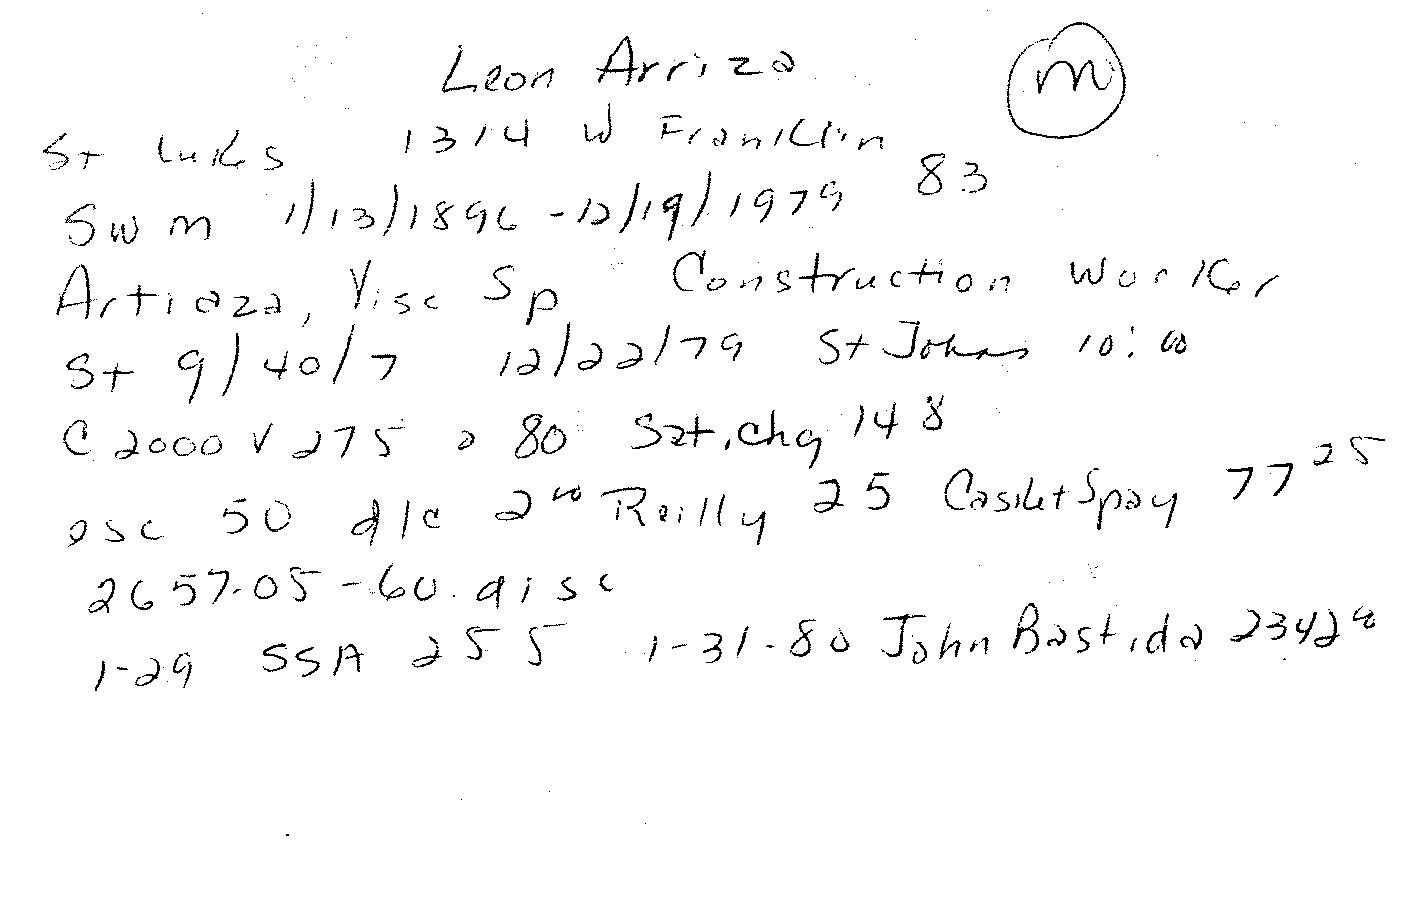 Leon Arriza m
St Lukes 1314 W Franklin
SWM 1/13/1896 - 12/19/1979 83
Artiaza, Visc Sp Construction Worker
St 9/40/7 12/22/79 St Johns 10:00
C 2000 V 275 o 80 Sat. chg 148
osc 50 d/c 2 00 Reilly 25 Casket Spay 77 25
2657.05 - 60. disc
1-29 SSA 255 1-31-80 John Bastida 2342 00